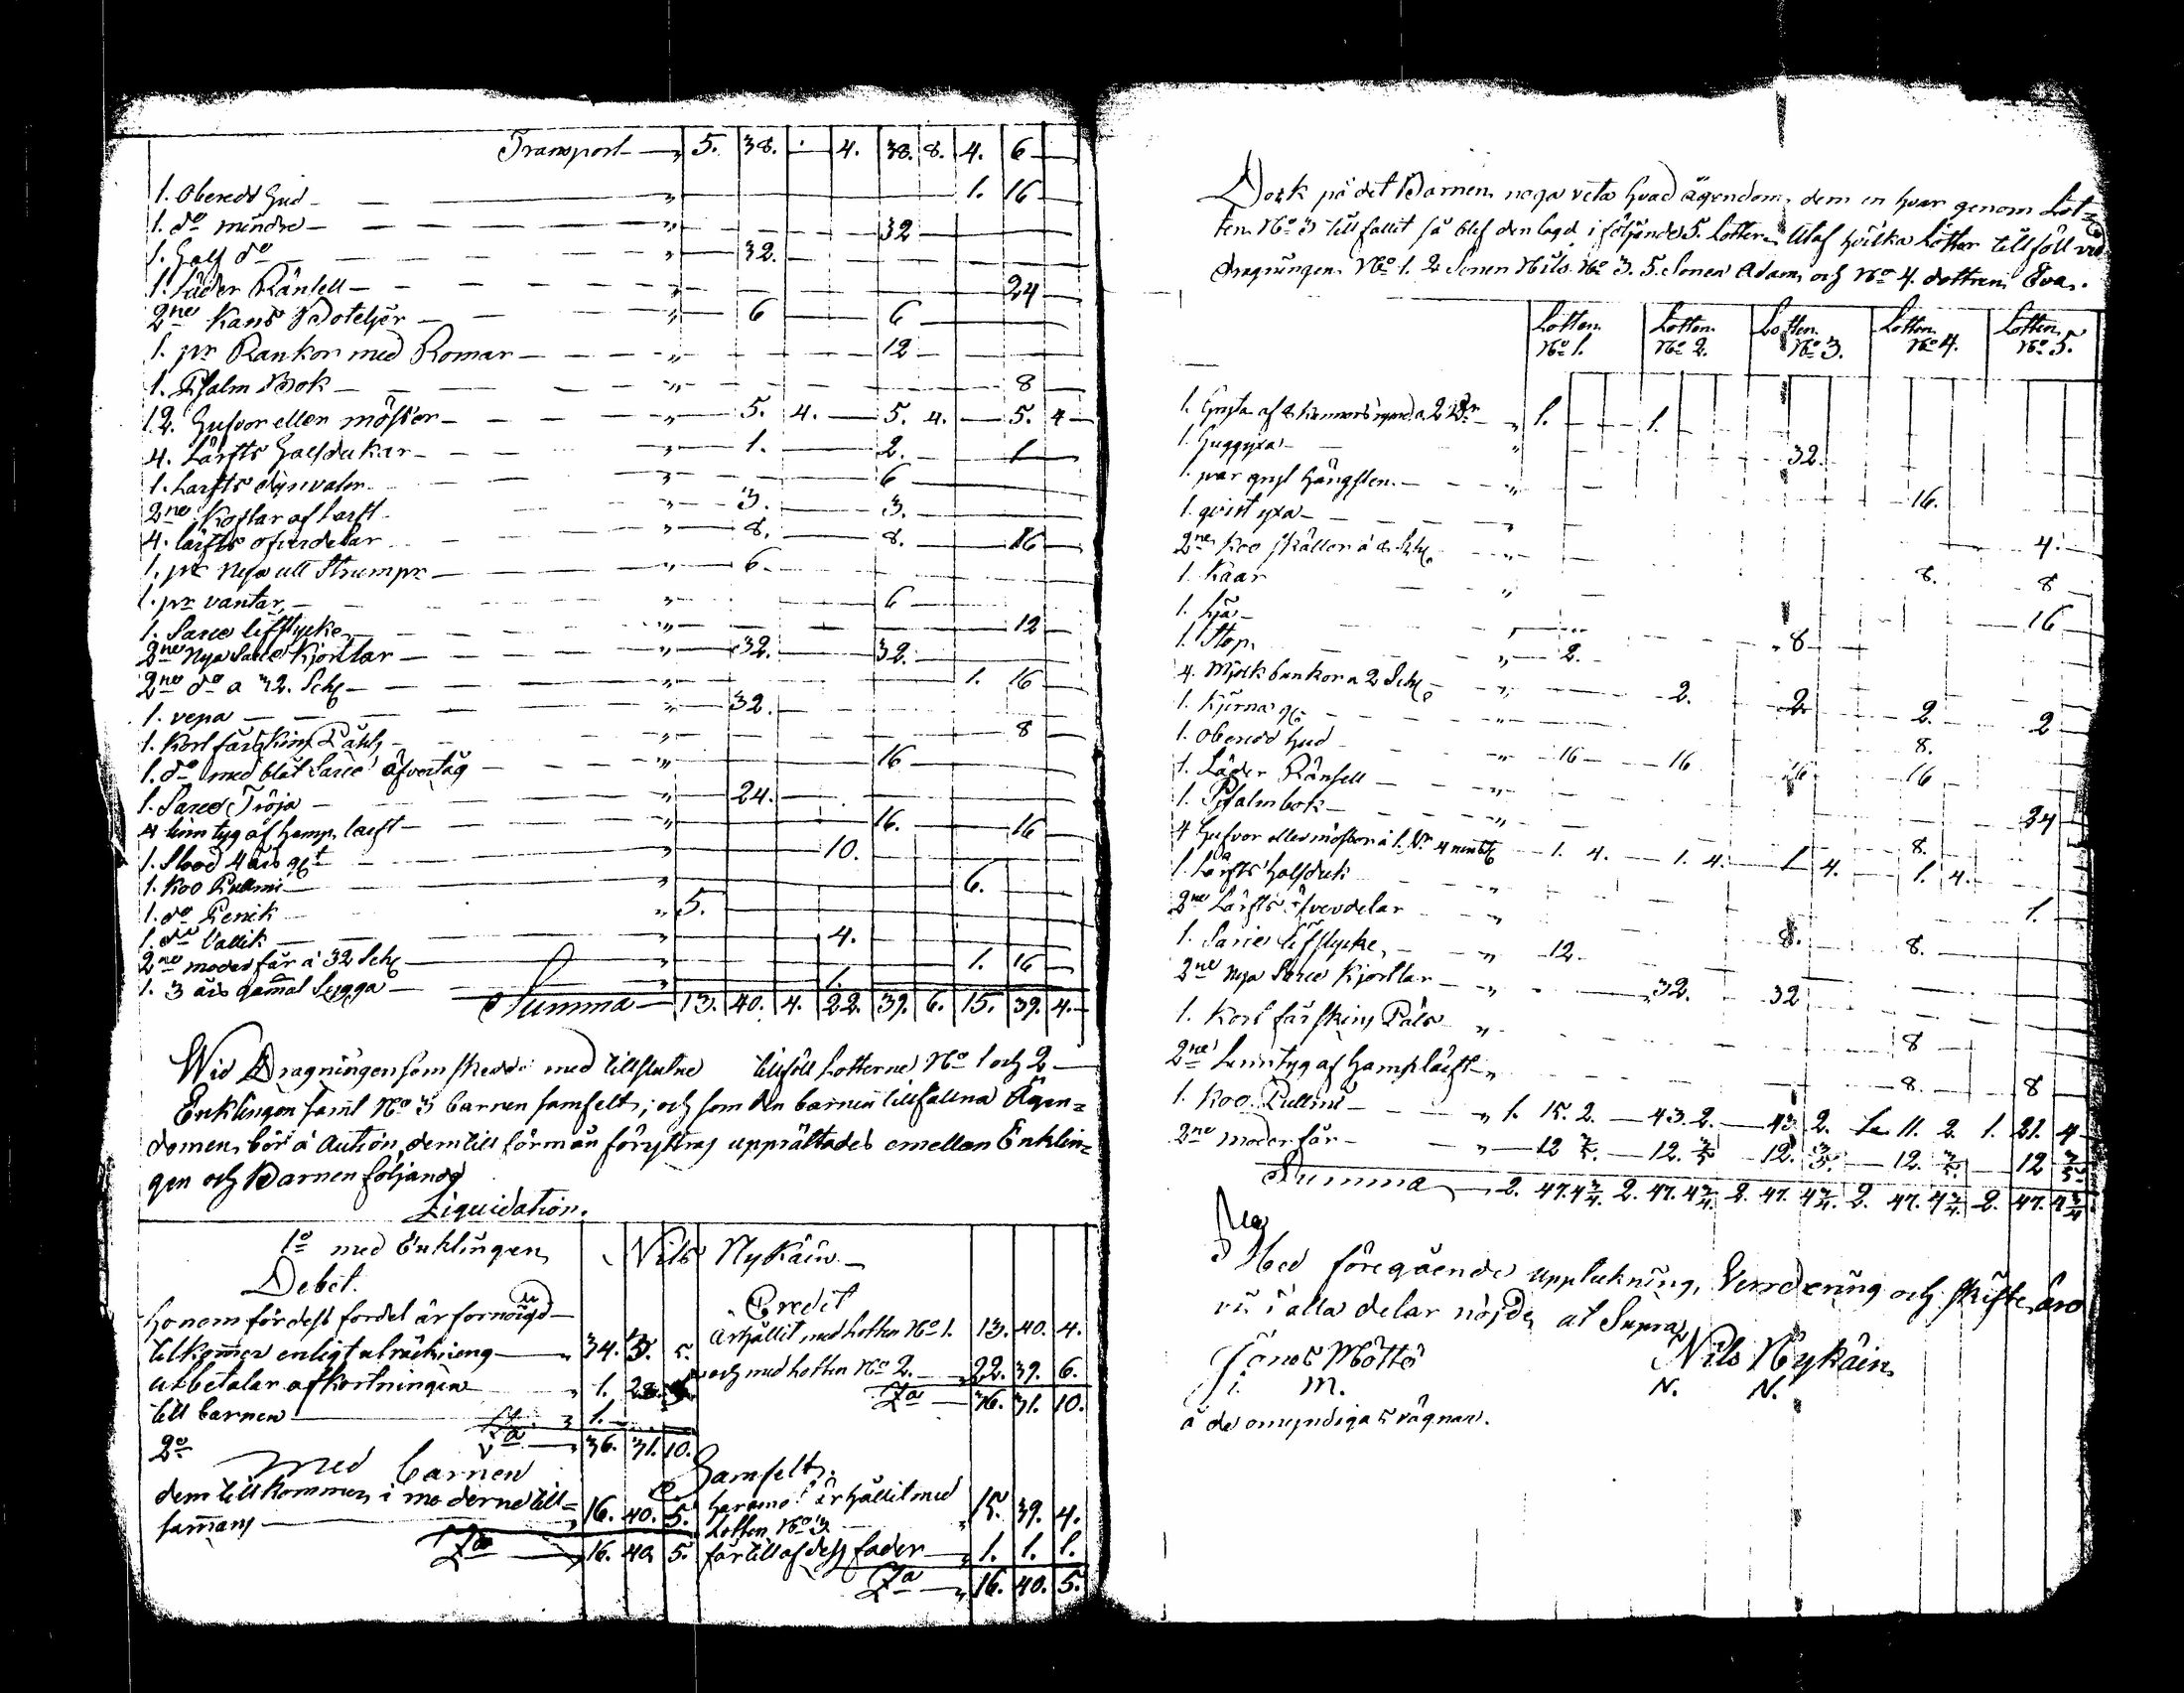 Transport — " 5. 38. · — 4. 38. 8. 4. 6 —
1. Oberedd Hud — — " 1. 16
1. do mindre — — " 32
1. Half do — — " 32.
1. Läder Ränsell — — " 24
2ne Kans Boteljer — — " 6 6
1. pr Rankor med Romar — — " 12
1. Psalm Bok — — " 8
12. Hufvor eller mössor — — " 5. 4. — 5. 4. — 5. 4
4. Lärfts Halsdukar — — " 1. 2. 1
1. Larfts dynvahr — — " 6
2ne Kostar af larft — " 3. 3.
4. lärfts ofverdelar — " 8. 8. 16
1. pr nya ull Strumpr — " 6.
1. pr vantar — " 6
1. Sarce lifstycke — — " 12
2ne Nya Sarce Kjortlar — — " 32. 32.
2ne do a 32. Sch — — " 1. 16
1. vepa — — " 32.
1. Kort fårskins Päls — " 8
1. do med blåt Sarce öfvertåg — — " 16
1. Sarce Tröja — — " 24.
4 linn tyg af hamp larft — — " 16. 16
1. Stood 4 års glt — " 10.
1. Koo Pullmi — " 6.
1. do Penik — " 5.
1. do Vallik — " 4.
2ne moder får a 32 Sch — " 1. 16
1. 3 års gamal Sugga — " 1.
Summa — 13. 40. 4. 22. 39. 6. 15. 39. 4.
Wid Dragningen som skedde med tillslutne tillföll Lotterne No 1 och 2 —
Enklingen samt No 3 barnen samfelt; och som den barnen tillfallna Ägen=
domen, bör å Aution, dem till förmån förytring upprättades emellan Enklin=
gen och Barnen följande
Liquidation.
1o med Enklingen Nils Nykäin —
Debet. Credit
Honom fördess fordel är fornöigd —
tilkommer enligt uträkning — " 34. 3. 5. Ärhållit med Lotten No 1. 13. 40. 4.
utbetalar afkortningen — " 1. 28. och med Lotten No 2. — 22. 39. 6.
till barnen — " 1. Sa — 36. 31. 10.
Sa — 36. 31. 10.
2o
med barnen Samfelt.
dem tillkommer i moderne till=
samans — " 16. 40. 5. Haramot ärhållit med
Lotten No 3 " 15. 39. 4.
Sa — 16. 40. 5. får till af dess fader — " 1. 1. 1.
Sa — " 16. 40. 5.
Dock på det Barnen noga veta hvad ägendom dem en hvar genom Lot=
ten No 3 tillfallit så blef den lagd i följande 5. Lotter. Utaf hvilka Lotter tillföll vid
dragningen No 1. 2 Sonen Nils. No 3. 5. Sonen Adam, och No 4. dottren Eva.
Lotten No 1. Lotten No 2. Lotten No 3. Lotten No 4. Lotten No 5.
1. Gryta af 8 kannors rymd a 2 Rdr — " 1. — 1.
1. Huggyxa — " 32.
1. par gryt hängslen — " 16.
1. qvist yxa — " 4.
2ne Koo skällor á 8 Sch — " 8. 8
1. Kaar — " 16
1. Ljä — " 8
1. Stop — " 2.
4. Mjölk bunkor a 2 Sch — " 2. 2. 2. 2
1. Kjerna gl. — " 8.
1. Oberedd hud — " 16 — 16 16 16
1. Läder Ränsell — " 24
1. Psalmbok — " 8.
4 Hufvor eller mössor á 1. Sr 4 — 1. 4. — 1. 4. 1. 4. 1. 4.
1. Larfts halsduk — " 1.
2ne Lärfts öfverdelar — " 8. 8.
1. Sarce lifstycke — " 12.
2ne nya Sarce Kjortlar — " 32. 32
1. Kort fårskins Päls " 8
2ne Linntyg af hamplärft — " 8. 8
1. Koo. Pullmi — — " 1. 15. 2. — 43. 2. — 43. 2. 1. 11. 2. 1. 21. 4
2ne moder får — — " — 12 3/5. — 12. 3/5 — 12. 3/5. — 12. 3/5. — 12 3/5
Summa — 2. 47. 4 3/4. 2. 47. 4 3/4. 2. 47. 4 3/4. 2. 47. 4 3/4. 2. 47. 4 3/4
Med föregående uppteckning, Verdering och skifte äro
vi i alla delar nöjde at Supra
Jöns Möttö Nils Nykäin
J. M. N. N.
å de omyndigas vägnar.